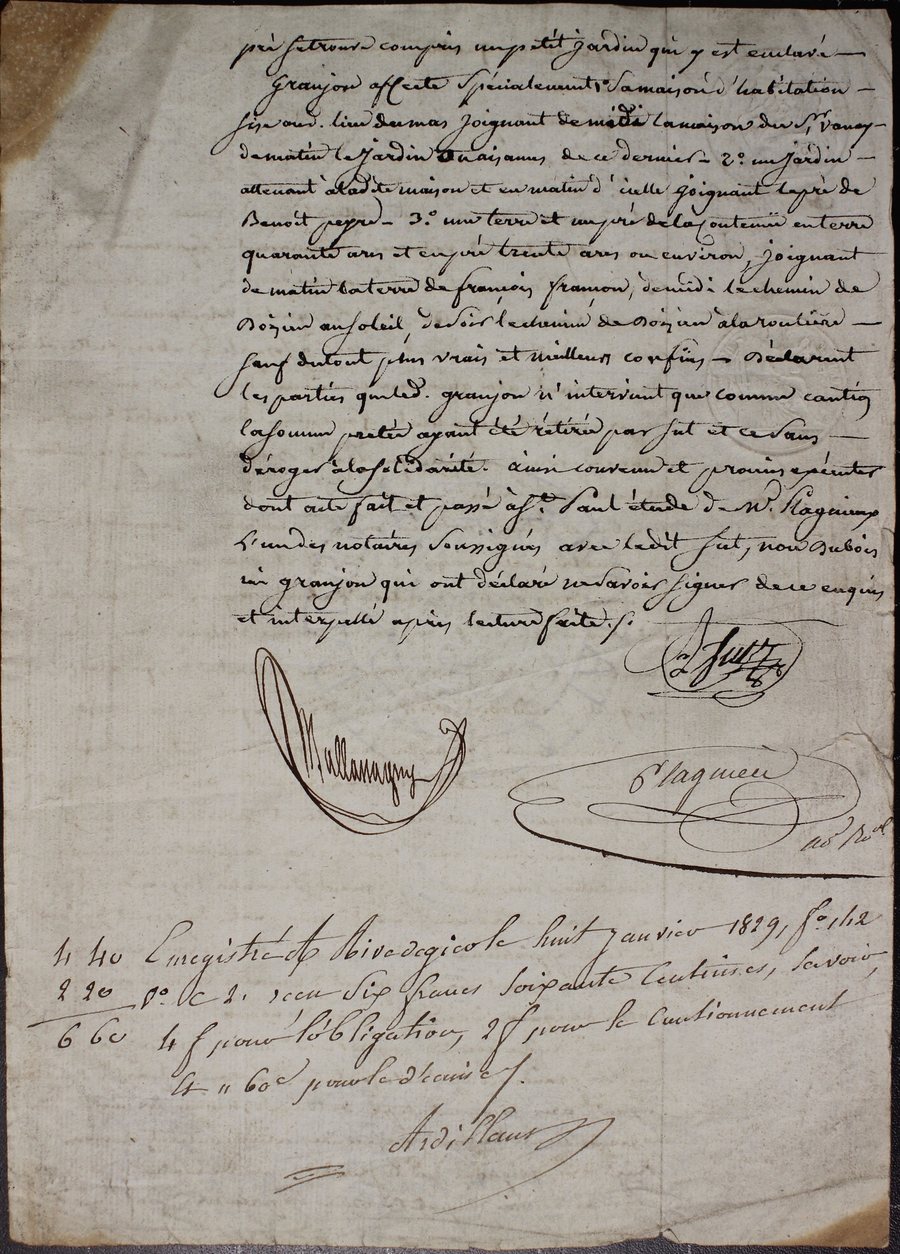 pré se trouve compris un petit jardin qui y est enclavé —
Granjon affecte spécialement 1° sa maison d'habitation —
sise aud. lieu du mas joignant de midi la maison du Sr.
de matin le jardin et aisances de ce dernier — 2° un jardin —
attenant à ladite maison et en matin d'icelle joignant le pré de
Benoît peyre — 3° une terre et un pré de la contenue en terre
quarante ares et en pré trente ares ou environ, joignant
de matin la terre de françois framon, de midi le chemin de
au soleil, de soir le chemin de à la roulière —
sauf du tout plus vrais et meilleurs confins — Déclarent
les parties que led. granjon n'intervient que comme caution
la somme pretée ayant été retirée par Sut et ce sans —
déroger à la solidarité. ainsi convenu et promis exécuter
dont acte fait et passé à St. Paul étude de Me. Plagnieux
l'un des notaires soussignés avec ledit Sut, non Dubois
ni granjon qui ont déclaré ne savoir signer de ce enquis
et interpellé après lecture faite ./.
Sut
Mallassagny
Plagnieu
no. Ral
4 40 Enregistré à Rivedegier le huit janvier 1829, fo. 142
2 20 Vo. C 2. reçu six francs soixante centimes, savoir,
6 60 4 f pour l'obligation, 2 f pour le cautionnement
& " 60c pour le décime /.
Ardillaus